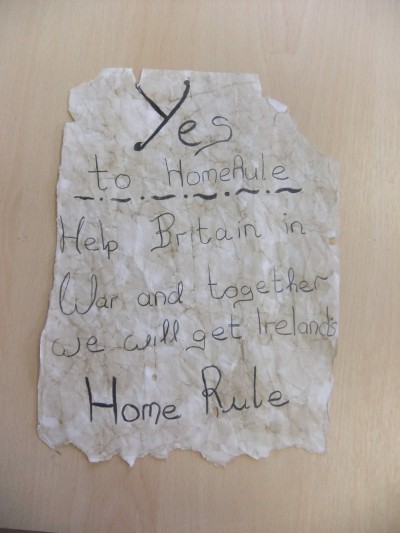 Yes
to HomeRule
Help Britain in
War and together
we will get Irelands
Home Rule